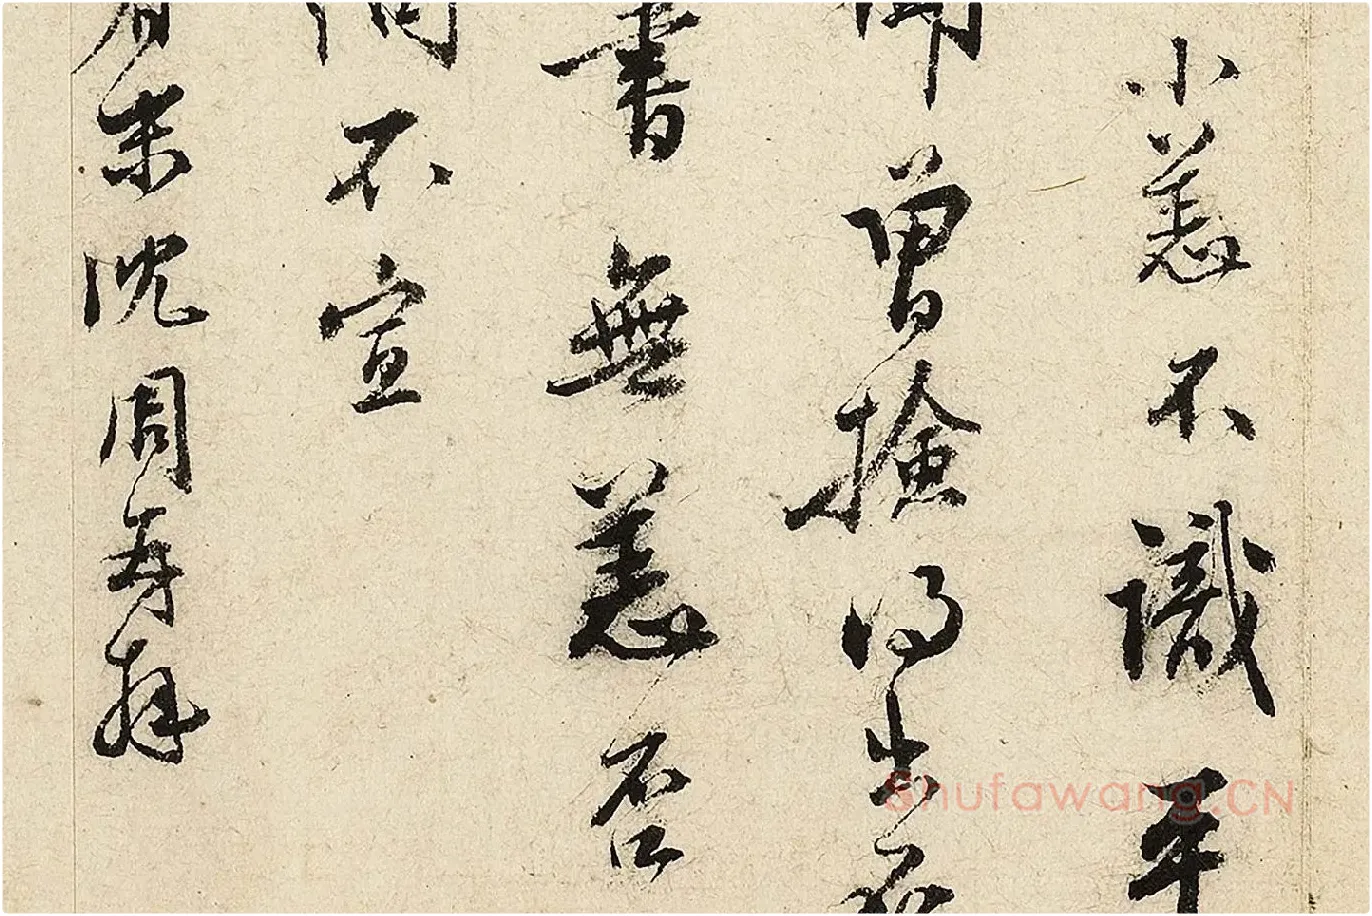 小恙不識平
曾撿得出
書無恙否
不宣
末沈周再拜
Shufawang.CN